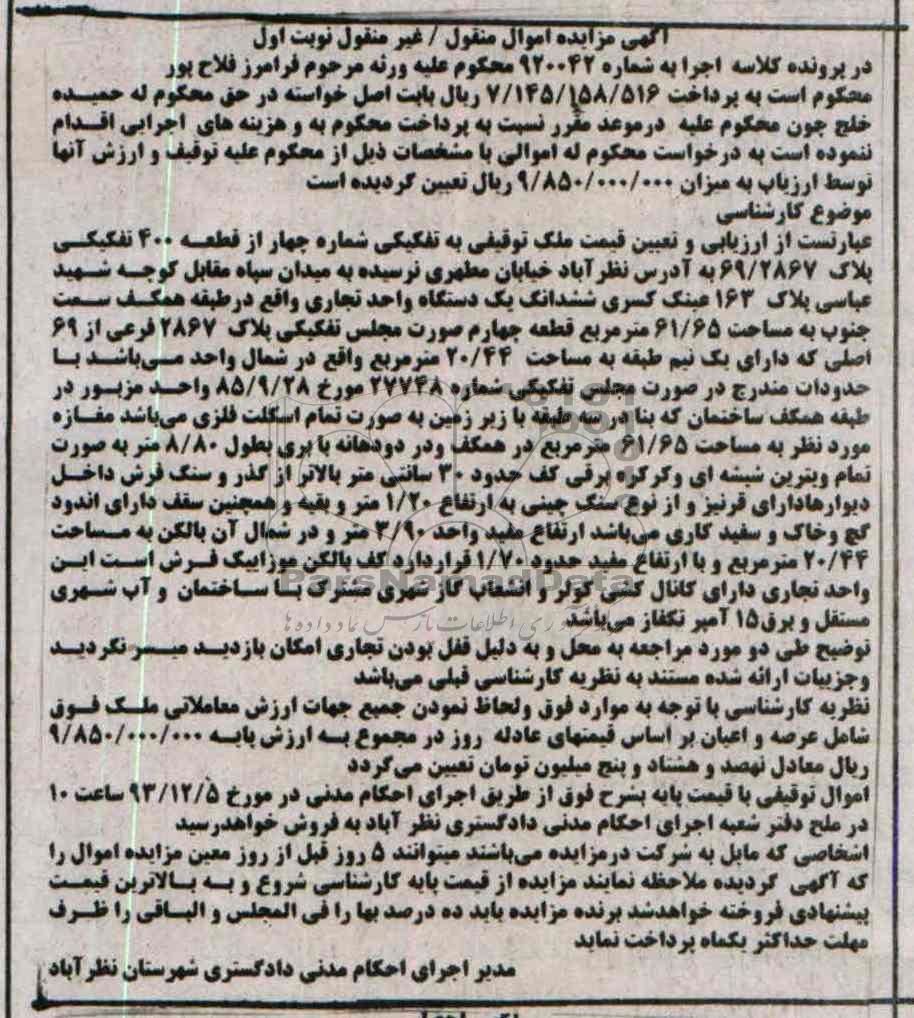 آگهی مزایده اموال منقول / غیر منقول نوبت اول
در پرونده کلاسه اجرا به شماره ۹۲۰۰۴۲ محکوم علیه ورثه مرحوم فرامرز فلاح پور
محکوم است به پرداخت ۷/۱۴۵/۱۵۸/۵۱۶ ریال بابت اصل خواسته در حق محکوم له حمیده
خلج چون محکوم علیه درموعد مقرر نسبت به پرداخت محکوم به و هزینه های اجرایی اقدام
ننموده است به درخواست محکوم له اموالی با مشخصات ذیل از محکوم علیه توقیف و ارزش آنها
توسط ارزیاب به میزان ۹/۸۵۰/۰۰۰/۰۰۰ ریال تعیین گردیده است
موضوع کارشناسی
عبارتست از ارزیابی و تعیین قیمت ملک توقیفی به تفکیکی شماره چهار از قطعه ۴۰۰ تفکیکی
پلاک ۶۹/۲۸۶۷ به آدرس نظرآباد خیابان مطهری نرسیده به میدان سپاه مقابل کوچه شهید
عباسی پلاک ۱۶۳ عینک کسری ششدانگ یک دستگاه واحد تجاری واقع درطبقه همکف سمت
جنوب به مساحت ۶۱/۶۵ مترمربع قطعه چهارم صورت مجلس تفکیکی پلاک ۲۸۶۷ فرعی از ۶۹
اصلی که دارای یک نیم طبقه به مساحت ۲۰/۴۴ مترمربع واقع در شمال واحد می‌باشد با
حدودات مندرج در صورت مجلس تفکیکی شماره ۲۷۷۴۸ مورخ ۸۵/۹/۲۸ واحد مزبور در
طبقه همکف ساختمان که بنا در سه طبقه با زیر زمین به صورت تمام اسکلت فلزی می‌باشد مغازه
مورد نظر به مساحت ۶۱/۶۵ مترمربع در همکف ودر دودهانه با بری بطول ۸/۸۰ متر به صورت
تمام ویترین شیشه ای وکرکره برقی کف حدود ۳۰ سانتی متر بالاتر از گذر و سنگ فرش داخل
دیوارهادارای قرنیز و از نوع سنگ چینی به ارتفاع ۱/۲۰ متر و بقیه و همچنین سقف دارای اندود
گچ وخاک و سفید کاری می‌باشد ارتفاع مفید واحد ۳/۹۰ متر و در شمال آن بالکن به مساحت
۲۰/۴۴ مترمربع و با ارتفاع مفید حدود ۱/۷۰ قراردارد کف بالکن موزاییک فرش است این
واحد تجاری دارای کانال کشی کولر و انشعاب گاز شهری مشترک با ساختمان و آب شهری
مستقل و برق۱۵ آمپر تکفاز می‌باشد
توضیح طی دو مورد مراجعه به محل و به دلیل قفل بودن تجاری امکان بازدید میسر نگردید
وجزییات ارائه شده مستند به نظریه کارشناسی قبلی می‌باشد
نظریه کارشناسی با توجه به موارد فوق ولحاظ نمودن جمیع جهات ارزش معاملاتی ملک فوق
شامل عرصه و اعیان بر اساس قیمتهای عادله روز در مجموع به ارزش پایه ۹/۸۵۰/۰۰۰/۰۰۰
ریال معادل نهصد و هشتاد و پنج میلیون تومان تعیین می‌گردد
اموال توقیفی با قیمت پایه بشرح فوق از طریق اجرای احکام مدنی در مورخ ۹۳/۱۲/۵ ساعت ۱۰
در محل دفتر شعبه اجرای احکام مدنی دادگستری نظر آباد به فروش خواهدرسید
اشخاصی که مایل به شرکت درمزایده می‌باشند میتوانند ۵ روز قبل از روز معین مزایده اموال را
که آگهی گردیده ملاحظه نمایند مزایده از قیمت پایه کارشناسی شروع و به بالاترین قیمت
پیشنهادی فروخته خواهدشد برنده مزایده باید ده درصد بها را فی المجلس و الباقی را ظرف
مهلت حداکثر یکماه پرداخت نماید
مدیر اجرای احکام مدنی دادگستری شهرستان نظرآباد
ParsNamadData